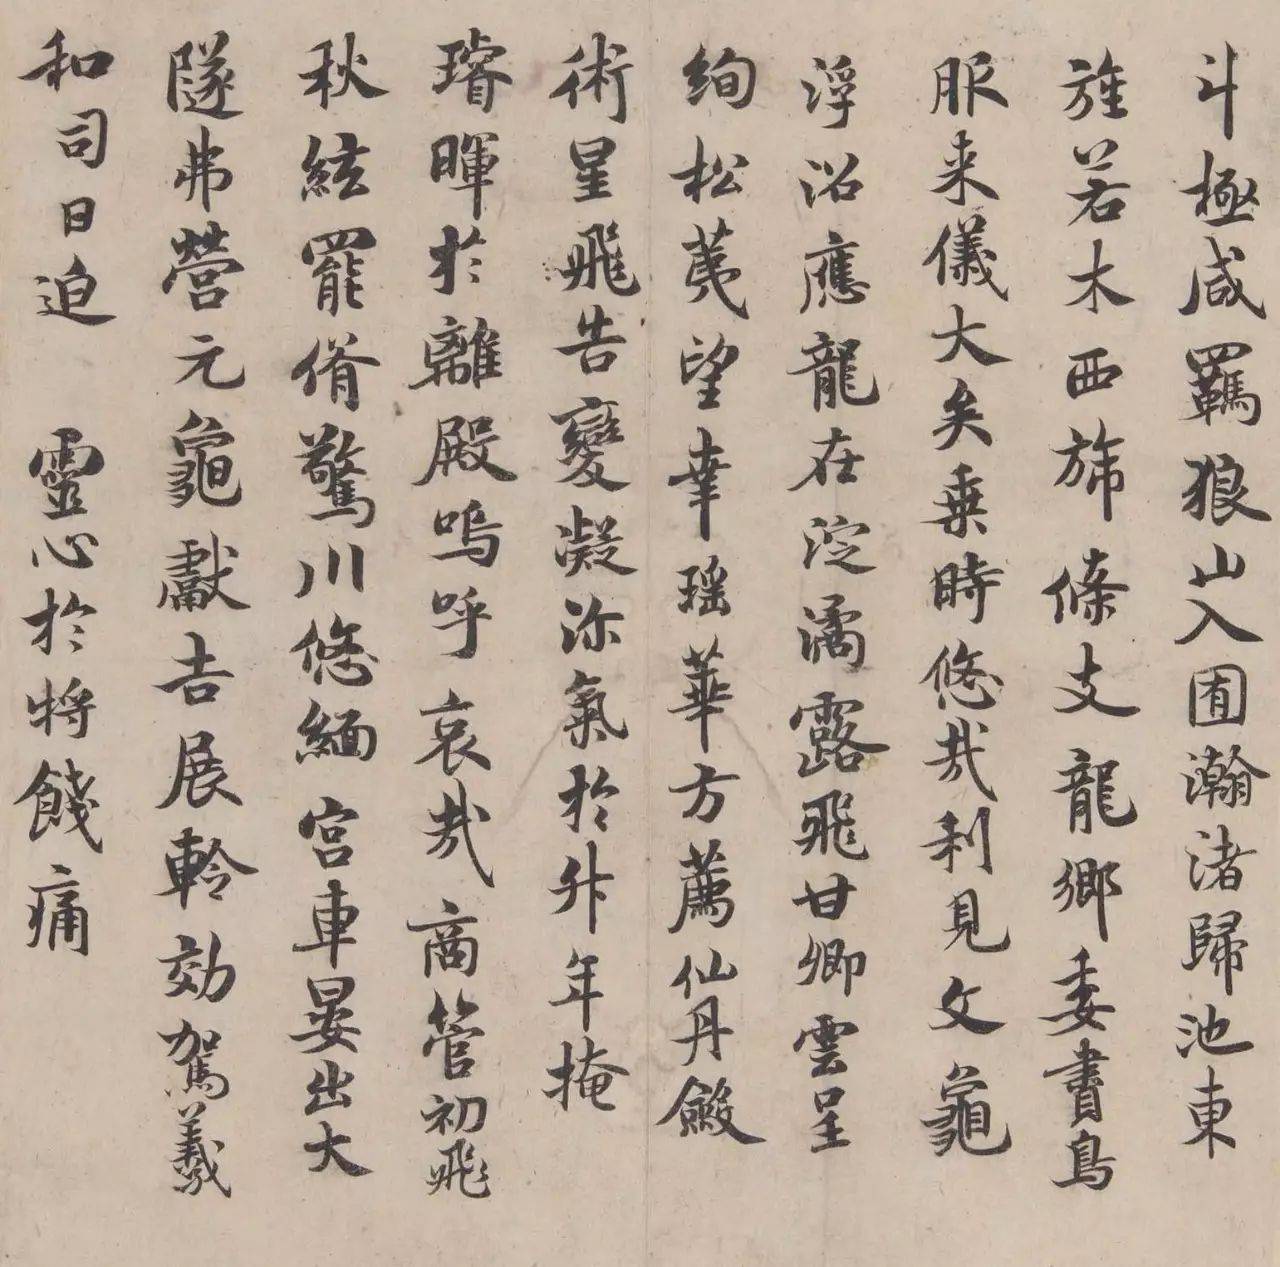 斗極咸羈狼山入囿瀚渚歸池東
旌若木西旆條支龍鄉委書鳥
服来儀大矣乗時悠哉利見文龜
浮沼應龍在淀潏露飛甘卿雲呈
絢松茂望幸瑶華方薦仙丹斂
術星飛告變凝沴氣於升年掩
璿暉於離殿嗚呼哀哉商管初飛
秋絃罷脩驚川悠緬宮車晏出大
隧弗營元龜獻吉展軨効駕羲
和司日迫靈心於將餞痛